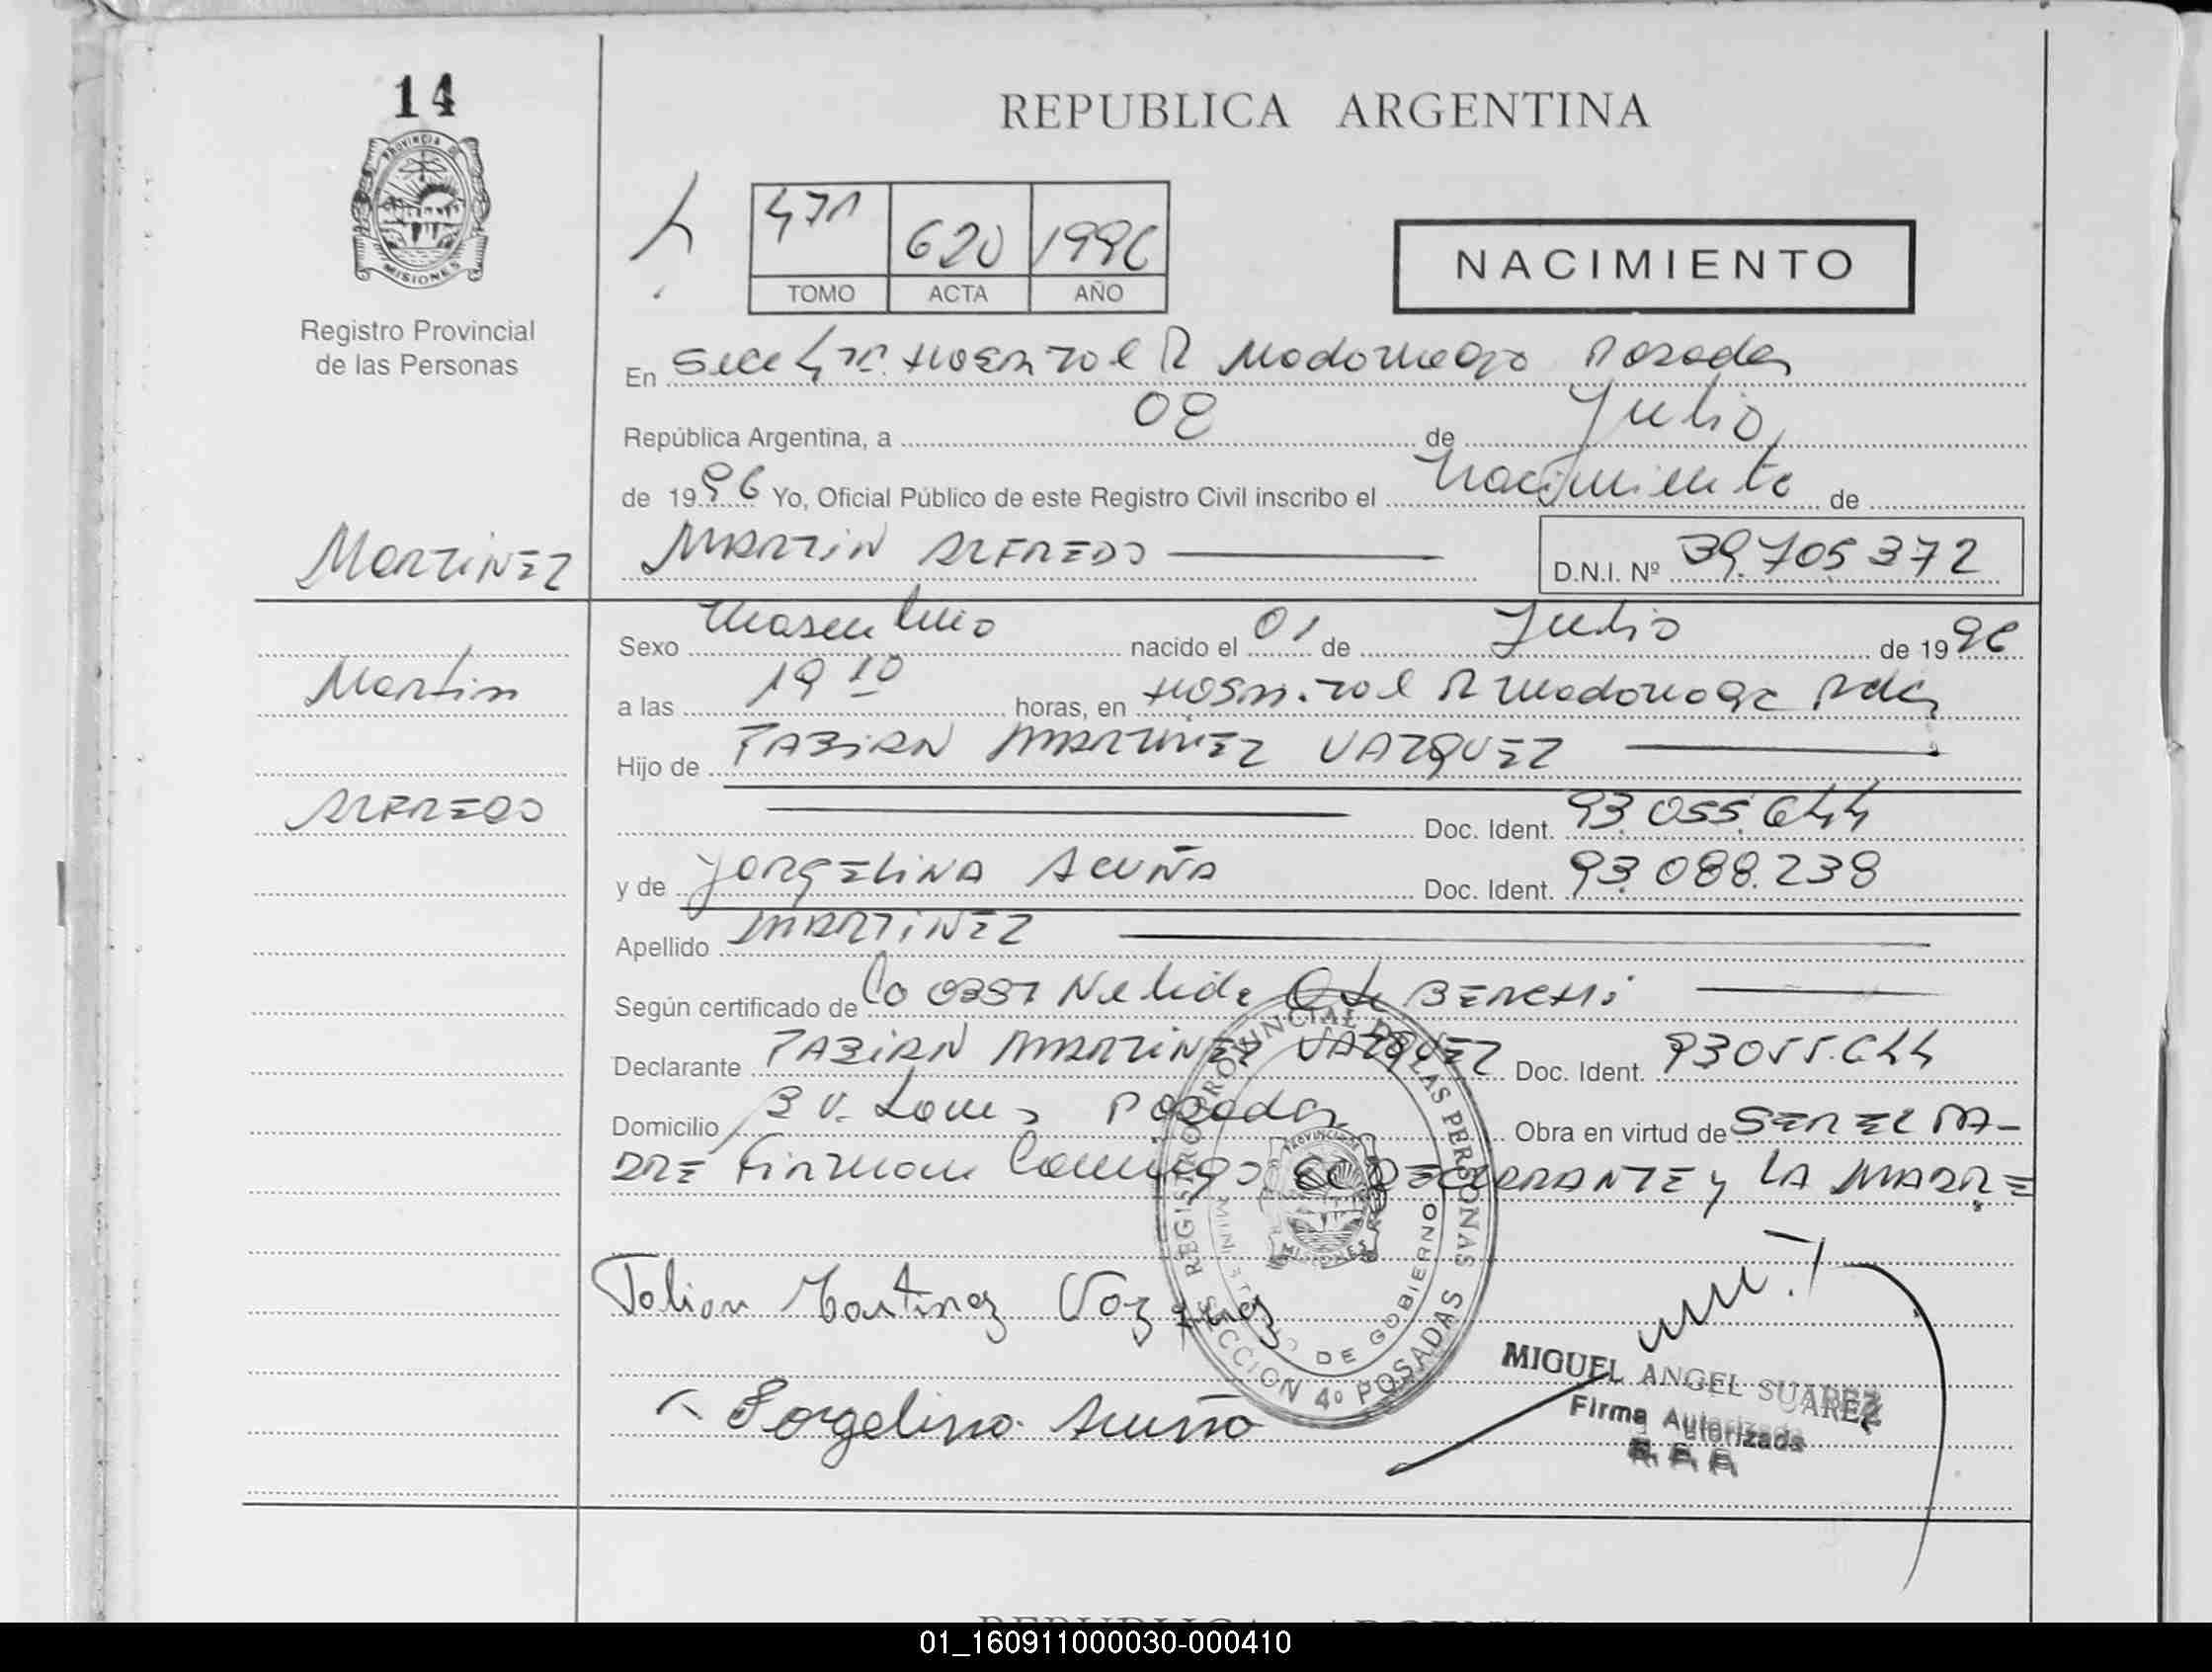 14
PROVINCIA DE
MISIONES
Registro Provincial
de las Personas
REPUBLICA ARGENTINA
620 1996
TOMO ACTA AÑO
NACIMIENTO
En Secc 4ta. Hospital R Madariaga Posadas
República Argentina, a 08 de Julio
de 1996 Yo, Oficial Público de este Registro Civil inscribo el Nacimiento de
MARTINEZ MARTIN ALFREDO D.N.I. Nº 39.705.372
Sexo Masculino nacido el 01 de Julio de 1996
Martin a las 19 10 horas, en Hospital R Madariaga Pdas
Hijo de FABIAN MARTINEZ VAZQUEZ
ALFREDO Doc. Ident. 93.055.644
y de JORGELINA ACUÑA Doc. Ident. 93.088.238
Apellido MARTINEZ
Según certificado de Nelida
Declarante FABIAN MARTINEZ VAZQUEZ Doc. Ident. 93055.644
Domicilio Posadas Obra en virtud de SER EL PA-
DRE Firman Conmigo EL DECLARANTE y LA MADRE
REGISTRO PROVINCIAL DE LAS PERSONAS
SECCION 4º POSADAS
MINISTERIO DE GOBIERNO
PROVINCIA DE
MISIONES
Fabian Martinez Vazquez
Jorgelina Acuña
MIGUEL ANGEL SUAREZ
Firma Autorizada
01_160911000030-000410